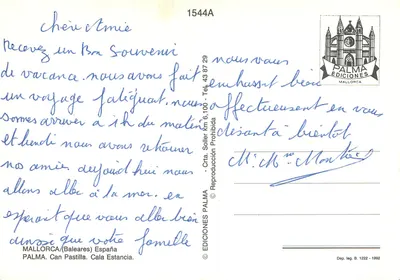 1544A
chère Amie
Recevez un Bon Souvenir
de vacance. nous avons fait
un voyage fatiguant. nous
sommes arriver a 1h du matin
et lundi nous avons retrouver
nos amies aujourd'hui nous
allons aller a la mer. en
esperait que vous aller bien
ainsi que votre famille
MALLORCA/(Baleares) España
PALMA. Can Pastilla. Cala Estancia.
© EDICIONES PALMA - Crta. Soller km 6,100 - Tel. 43 87 29
© Reproducción Prohibida
PALMA
EDICIONES
MALLORCA
nous vous
embrasst bien
affectueusement en vous
disant a bientôt
M. Mme
Dep. leg. B.